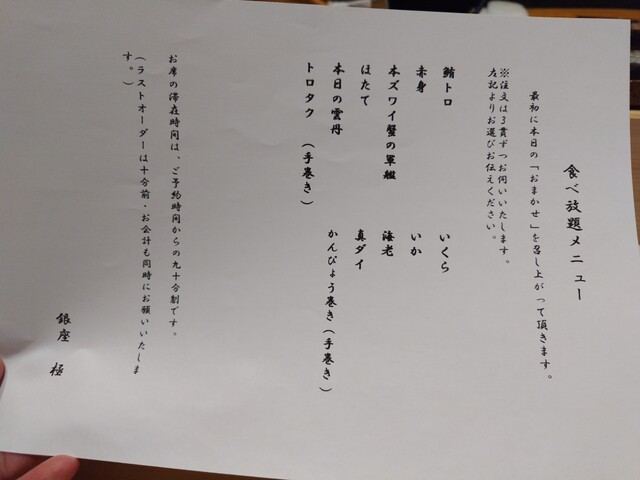 食べ放題メニュー
最初に本日の「おまかせ」を召し上がって頂きます。
※注文は3貫ずつお伺いいたします。
左記よりお選びお伝えください。
鮪トロ　いくら
赤身　いか
本ズワイ蟹の軍艦　海老
ほたて　真ダイ
本日の雲丹　かんぴょう巻き(手巻き)
トロタク　(手巻き)
お席の滞在時間は、ご予約時間からの九十分制です。
(ラストオーダーは十分前・お会計も同時にお願いいたしま
す。)
銀座　極